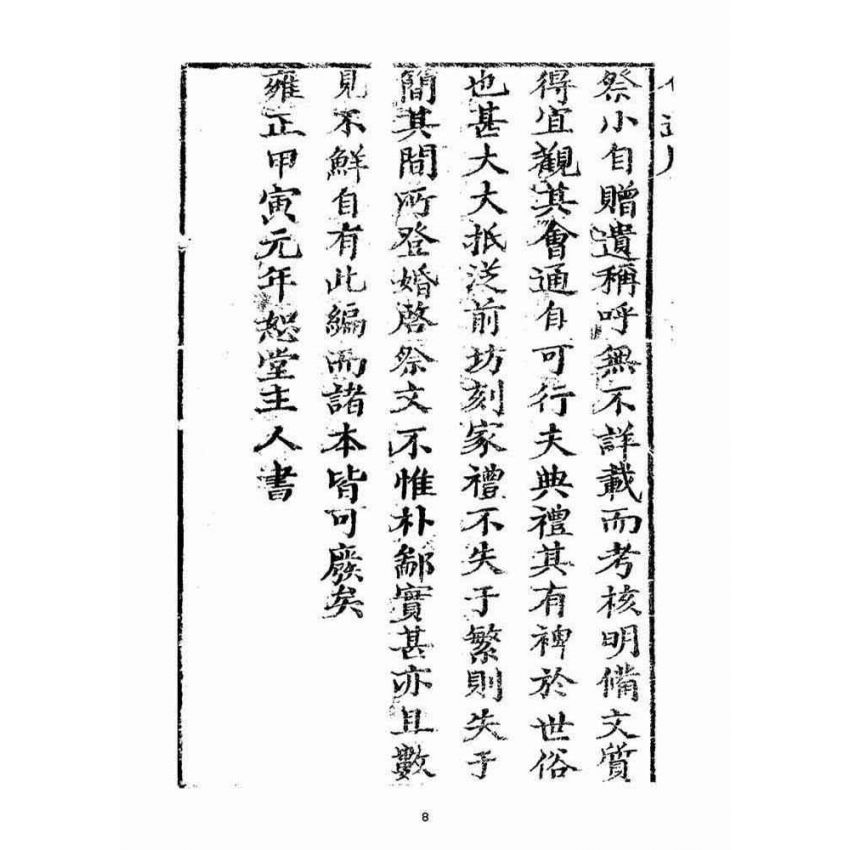 祭小自贈遺稱呼無不詳載而考核明備文質
得宜觀其會通自可行夫典禮其有裨於世俗
也甚大大抵從前坊刻家禮不失于繁則失于
簡其間所登婚啓祭文不惟朴鄙實甚亦且數
見不鮮自有此編而諸本皆可廢矣
雍正甲寅元年恕堂主人書
8